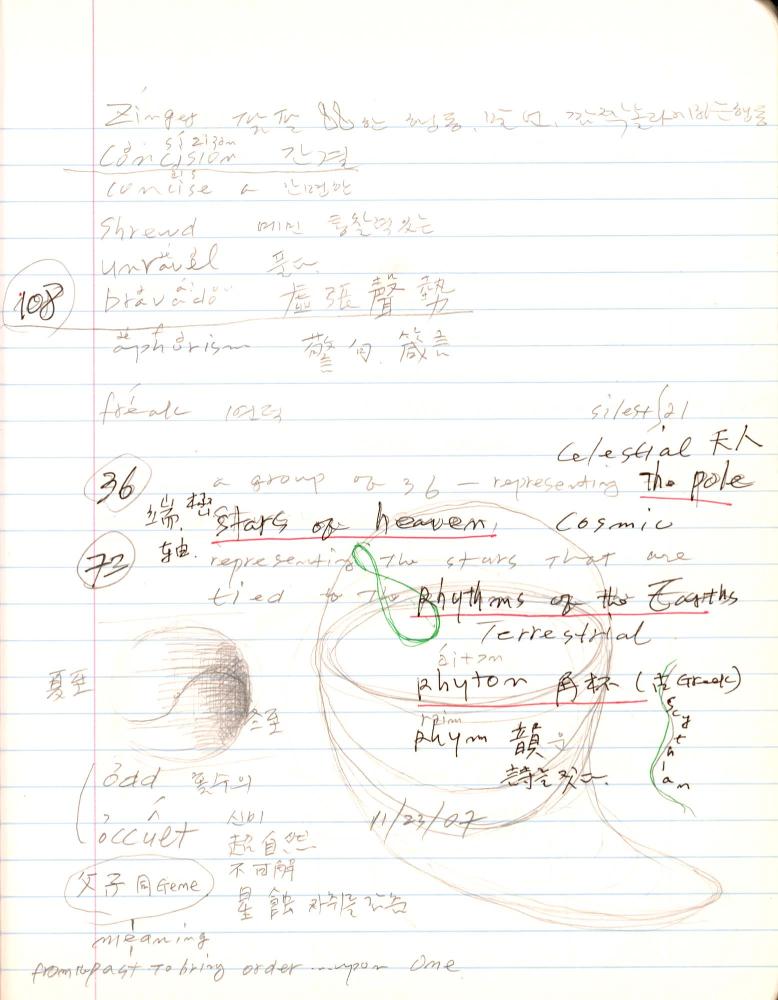 Zinger 깜짝 한 행동,
sí zizən
Concision 간결
concise a
Shrewd 예민 통찰력있는
unravel 풀다
108 bravado 虛張聲勢
aphorism 警句, 箴言
freak
silestʃəl
Celestial 天人
36 a group of 36 — representing the pole
端, 極 stars of heaven, Cosmic
軸.
72 representing the stars that are
tied to the rhythms of the Earths
Terrestrial
rhyton 角杯 (古 Greek)
Scythian
rhym 韻
詩를 짓다.
夏至
冬至
odd 홀수의
occult 신비 11/23/07
超自然
不可解
父子同 Geme
星蝕 자취를 감춤
meaning
from the past to bring order ... upon one